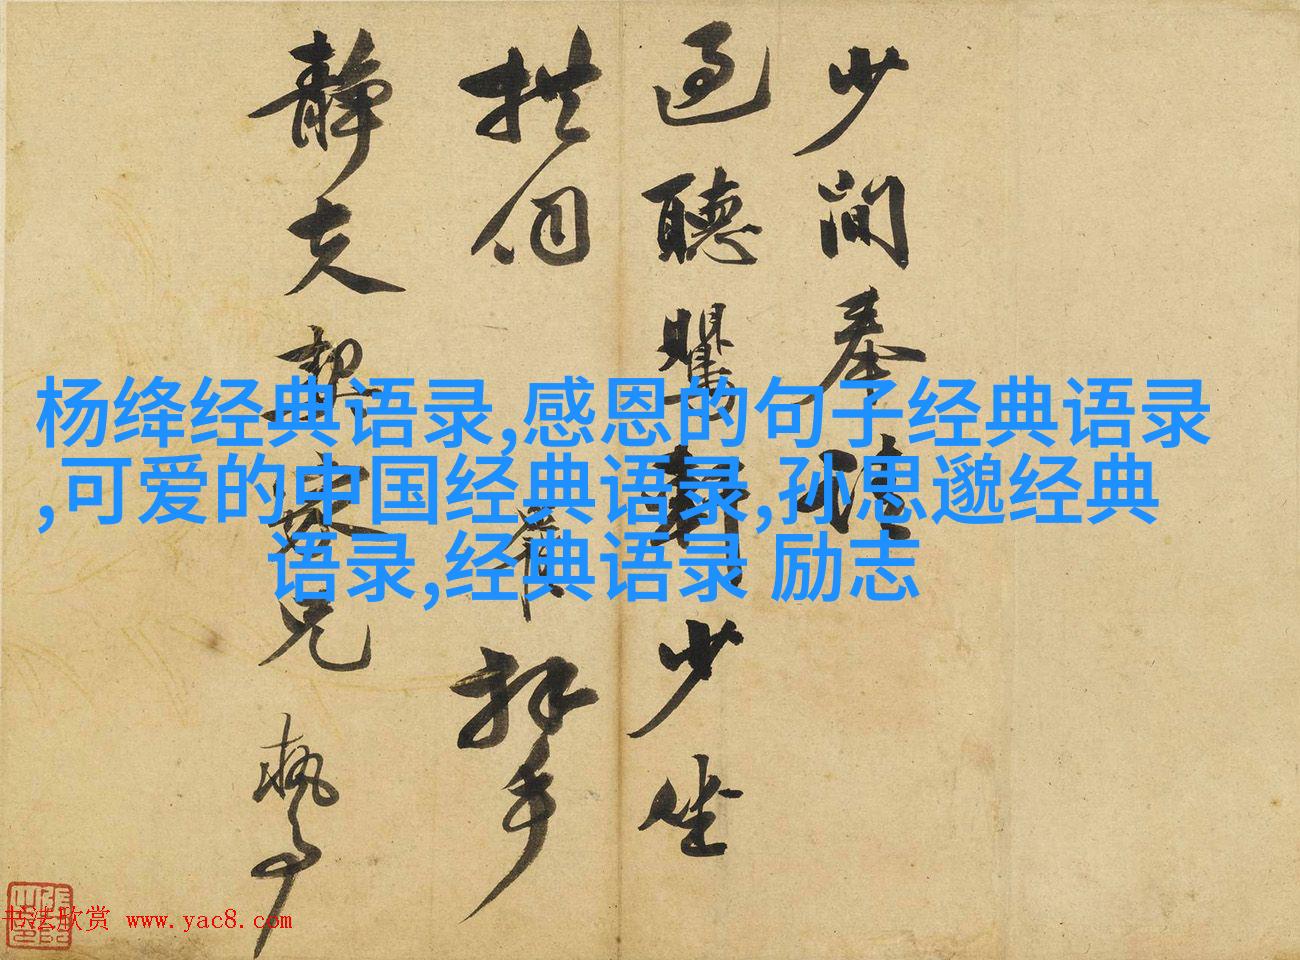 少間奉
過聽少坐
拱伺拜手
靜夫契家兄執事
杨绛经典语录,感恩的句子经典语录
,可爱的中国经典语录,孙思邈经典
语录,经典语录 励志
书法欣赏 www.yac8.com